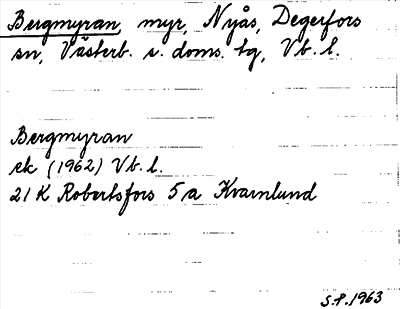 Bergmyran, myr, Nyås, Degerfors
sn, Västerb. s. doms. tg, Vb. l.
Bergmyran
ek (1962) Vb. l.
21 K Robertsfors 5 a Kvarnlund
S.P. 1963